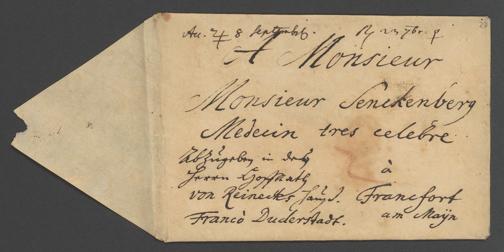 8 Septembris.
A Monsieur
Monsieur Senckenberg
Medecin tres celebre
Abzugeben in des
Herrn Hoffrath
à
von Reinecks Francfort
am Mayn
Franco Duderstadt.